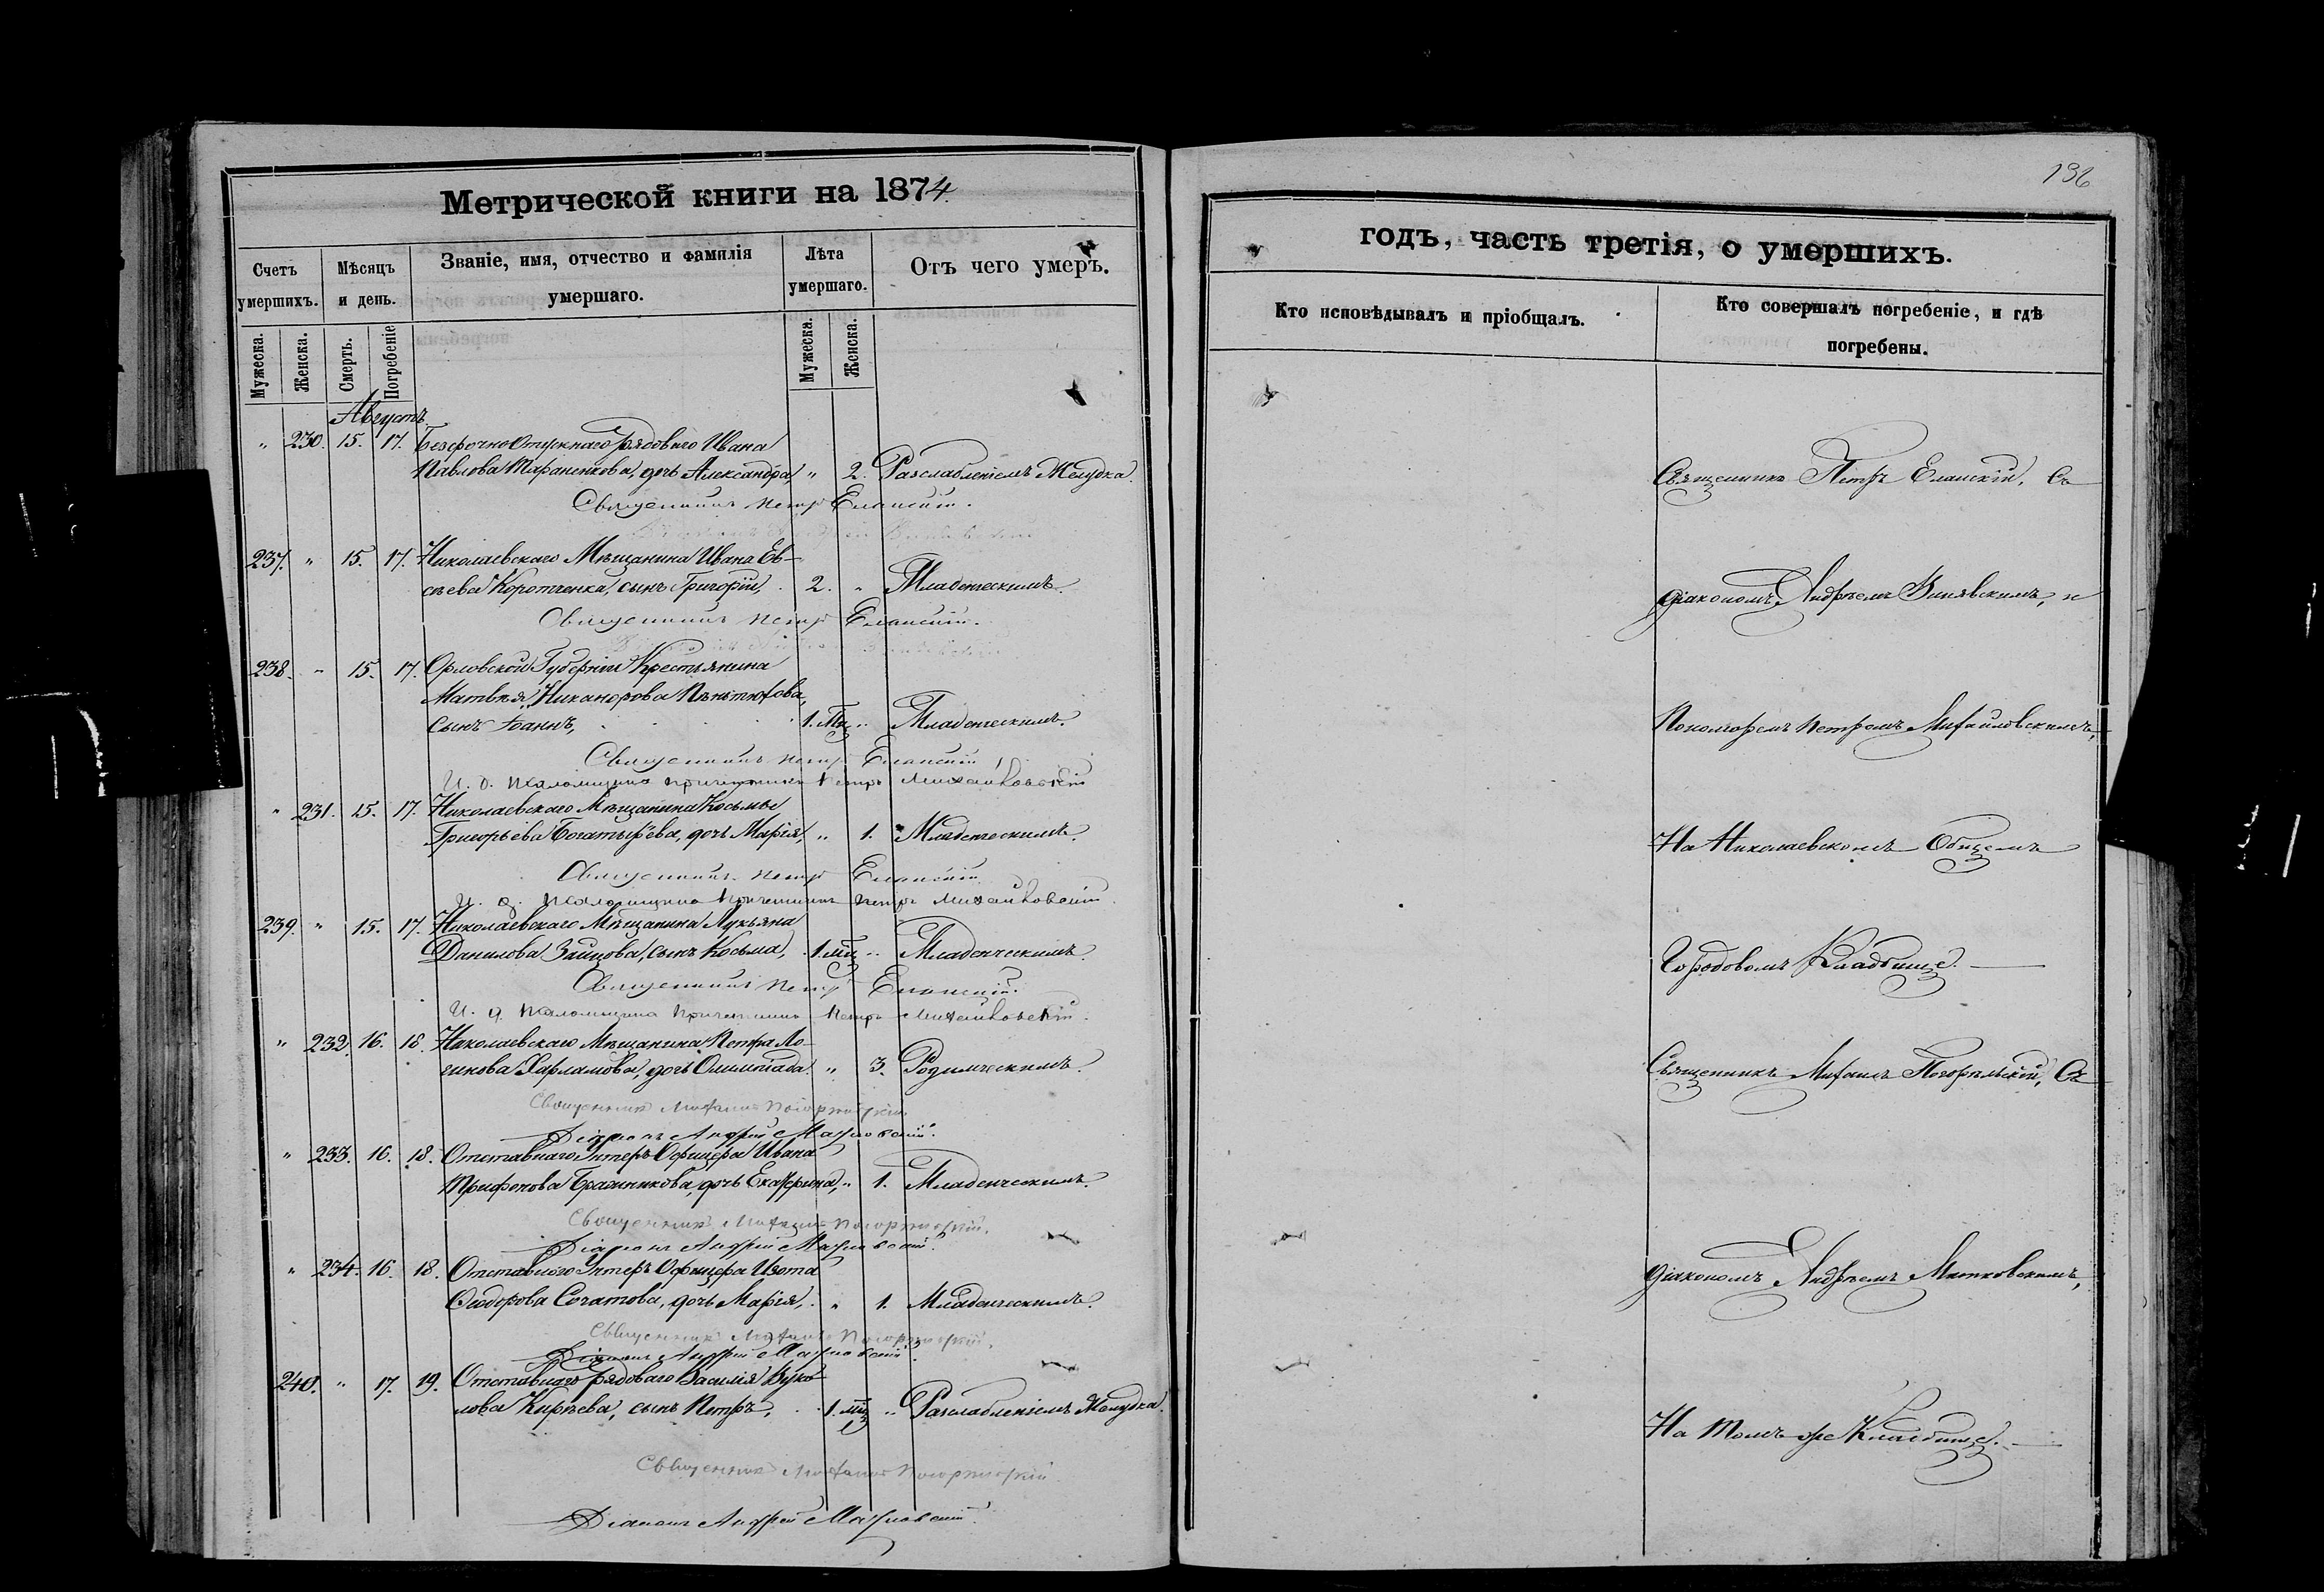 Метрической книги на 1874.
Счетъ умершихъ.
Мѣсяцъ и день.
Званіе, имя, отчество и фамилія умершаго.
Лѣта умершаго.
Отъ чего умеръ.
Мужеска.
Женска.
Смерть.
Погребеніе
Мужеска.
Женска.
Августъ.
" 230. 15. 17. Безсрочно Отпускнаго Рядоваго Ивана
Павлова Тараненкова, дочь Александра, " 2. Разслабленіемъ Желудка.
Священникъ Петръ Еланскій.
237. " 15. 17. Николаевскаго Мѣщанина Ивана Ев-
сѣева Коротченка, сынъ Григорій, 2. " Младенческимъ.
Священникъ Петръ Еланскій.
238. " 15. 17. Орловской Губерніи Крестьянина
Матвѣя Никанорова
Сынъ Іоаннъ, 1. Мц. " Младенческимъ.
Священникъ Петръ Еланскій
И. д. Псаломщика причетникъ Петръ Михайловскій
" 231. 15. 17. Николаевскаго Мѣщанина Космы
Григорьева Богатырева, дочь Марія, " 1. Младенческимъ.
Священникъ Петръ Еланскій
И. д. Псаломщика Причетникъ Петръ Михайловскій.
239. " 15. 17. Николаевскаго Мѣщанина Лукьяна
Данилова Зайцова, сынъ Косьма, 1. мц. " Младенческимъ.
Священникъ Петръ Еланскій.
И. д. Псаломщика Причетникъ Петръ Михайловскій.
" 232. 16. 18. Николаевскаго Мѣщанина Петра Ло-
гинова Харламова, дочь Олимпіада. " 3. Родимческимъ.
Священникъ Михаилъ Погорѣльскій
Діаконъ Андрей
" 233. 16. 18. Отставнаго Унтеръ Офицера Ивана
Трифонова дочь Екатерина, " 1. Младенческимъ.
Священникъ Михаилъ Погорѣльскій.
Діаконъ Андрей
" 234. 16. 18. Отставнаго Унтеръ Офицера Изота
Ѳеодорова дочь Марія, " 1. Младенческимъ.
Священникъ Михаилъ Погорѣльскій.
Діаконъ Андрей
240. " 17. 19. Отставнаго рядоваго Василія Вуко-
лова Кирѣева, сынъ Петръ, 1. мц. " Разслабленіемъ Желудка.
Священникъ Михаилъ Погорѣльскій
Діаконъ Андрей
136
годъ, часть третія, о умершихъ.
Кто исповѣдывалъ и пріобщалъ.
Кто совершалъ погребеніе, и гдѣ погребены.
Священникъ Петръ Еланскій, Съ
діакономъ Андреемъ и
Пономаремъ Петромъ Михайловскимъ,
На Николаевскомъ Общемъ
Городовомъ Кладбище.
Священникъ Михаилъ Погорѣльскій, Съ
діакономъ Андреемъ
На томъ же Кладбище.